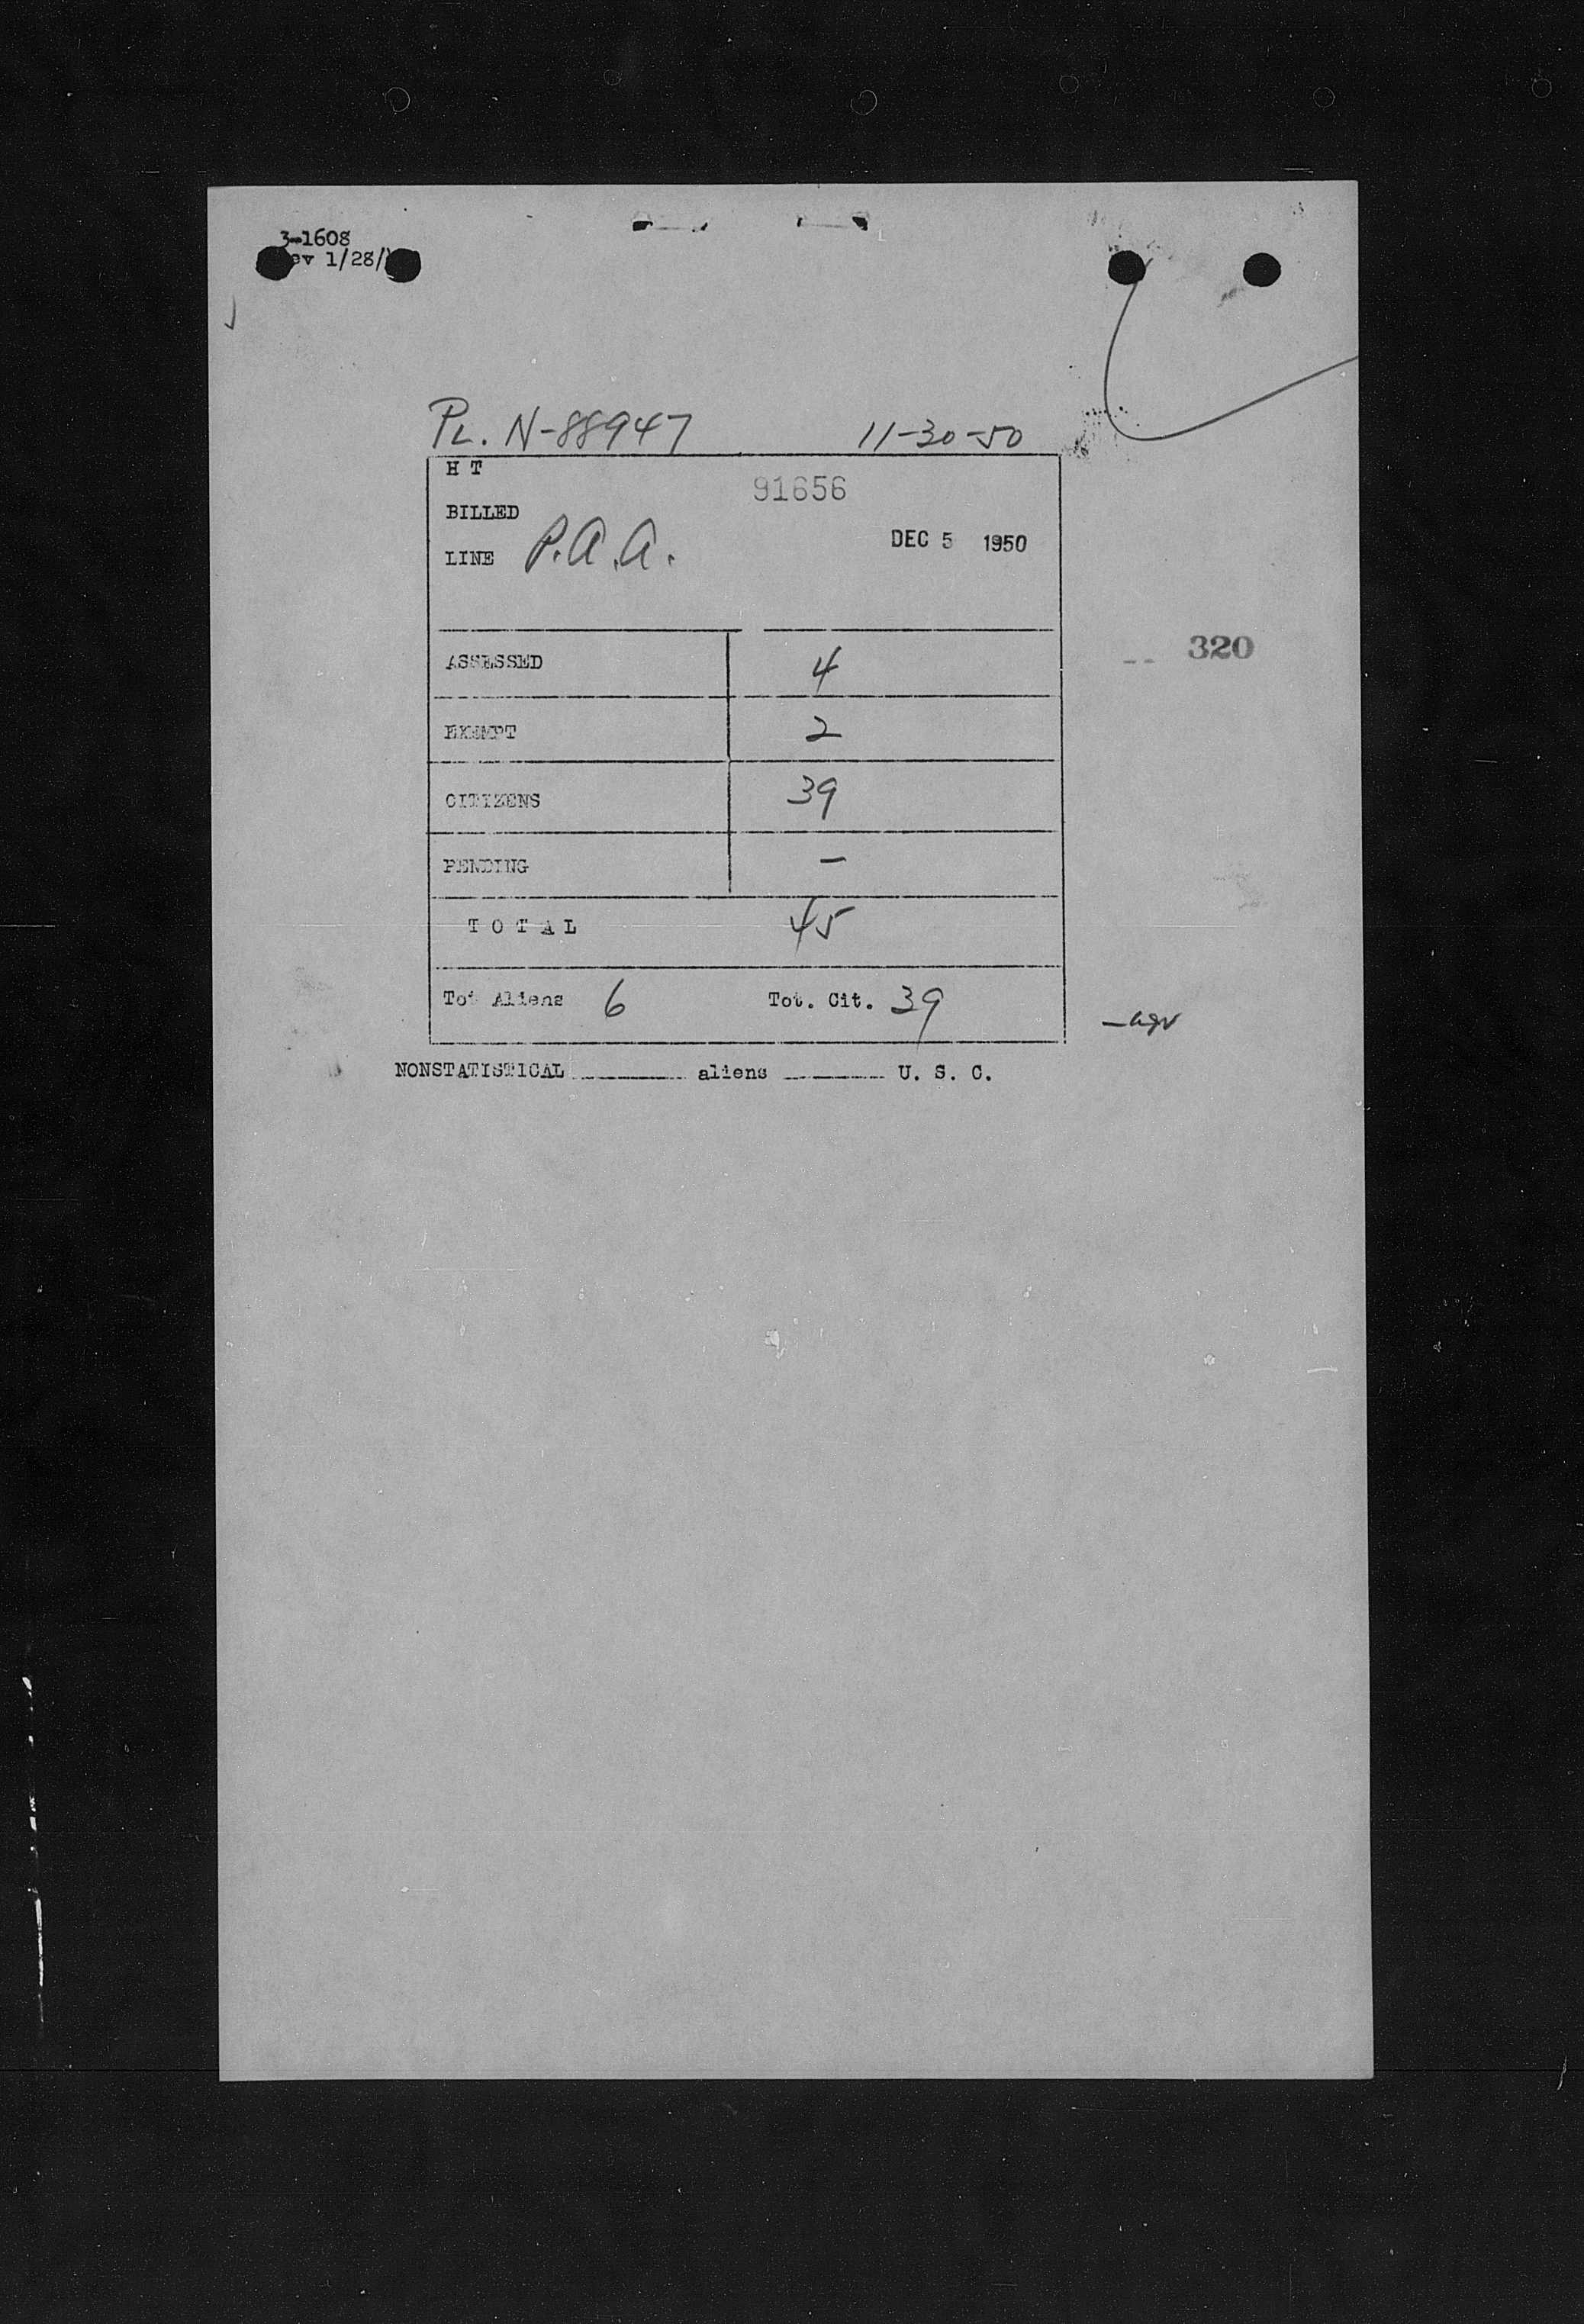 3-1608
ev 1/28/
PL. N-88947 11-30-50
H T
91656
BILLED
DEC 5 1950
LINE P.A.A.
320
ASSESSED 4
EXEMPT 2
CITIZENS 39
PENDING -
T O T A L 45
Tot Aliens 6 Tot. Cit. 39
NONSTATISTICAL ______ aliens ______ U. S. C.